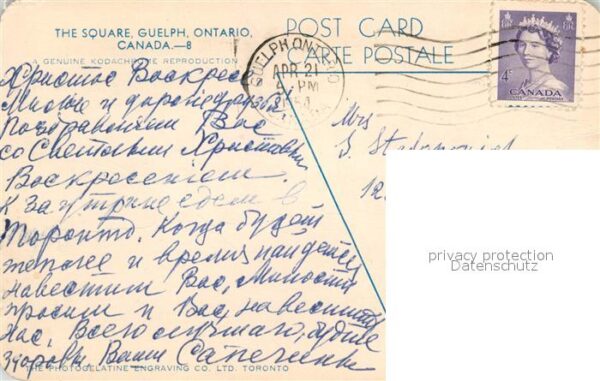 THE SQUARE, GUELPH, ONTARIO,
CANADA.—8
A GENUINE KODACHROME REPRODUCTION
POST CARD
CARTE POSTALE
GUELPH, ONTARIO
APR 21
PM
54
4¢
CANADA
Христос Воскрес
Милые и дорогие друзья
Поздравляем Вас
со Светлым Христовым
Воскресением.
К заутрине едем в
Торонто. Когда будет
теплее и время найдется
навестим Вас, Милости
просим и Вас, навестить
нас, Всего лучшаго, будте
здоровы, Ваши Сапетины
Mrs
S.
12
privacy protection
Datenschutz
THE PHOTOGELATINE ENGRAVING CO. LTD. TORONTO